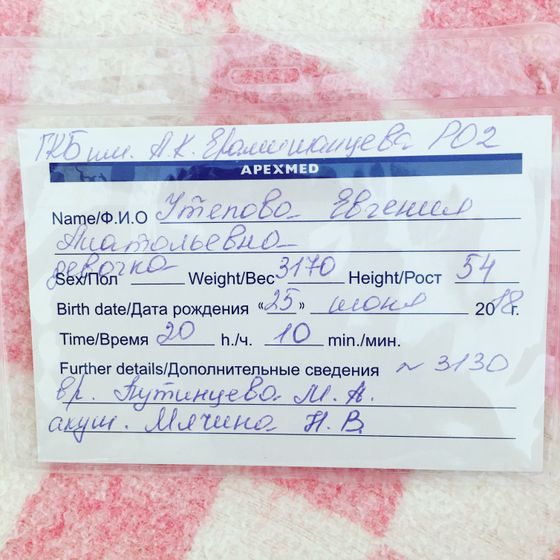 ГКБ им. А.К. Ерамишанцева РО2
APEXMED
Name/Ф.И.О Утепова Евгения
Анатольевна
девочка
Sex/Пол Weight/Вес 3170 Height/Рост 54
Birth date/Дата рождения «25» июня 2018г.
Time/Время 20 h./ч. 10 min./мин.
Further details/Дополнительные сведения ~ 3130
вр. Путинцева М. А.
акуш. Мячина Н. В.